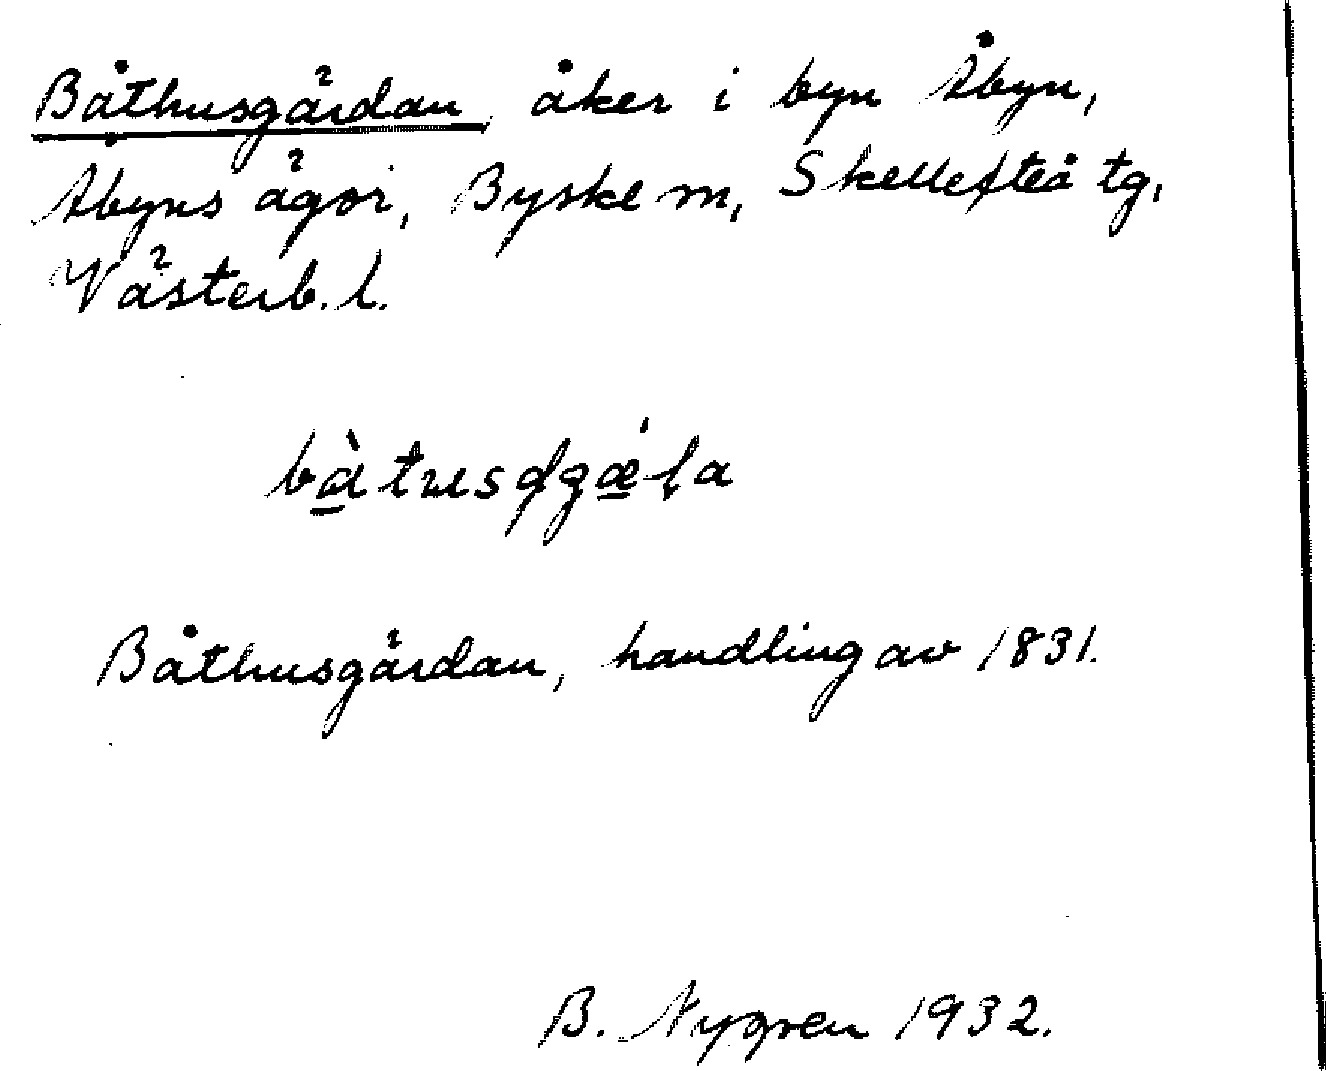 Båthusgärdan, åker i byn Åbyn,
Åbyns ägor, Byske m, Skellefteå tg,
Västerb. l.
Båthusgärdan, handling av 1831.
B. Nygren 1932.